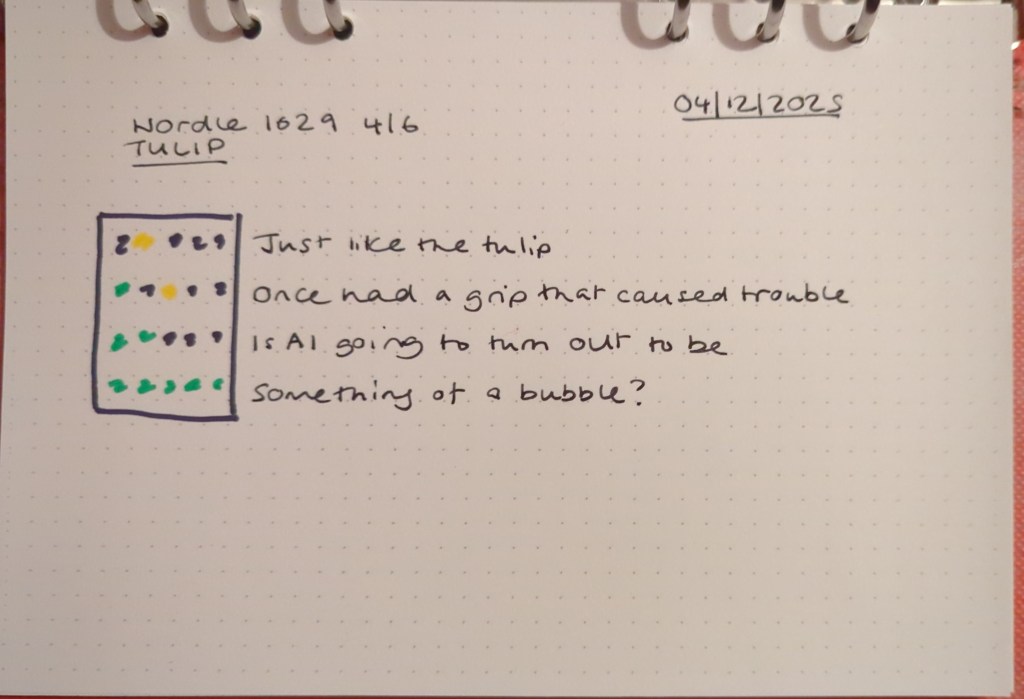 Wordle 1629 4/6
04/12/2025
TULIP
Just like the tulip
Once had a grip that caused trouble
Is AI going to turn out to be
Something of a bubble?